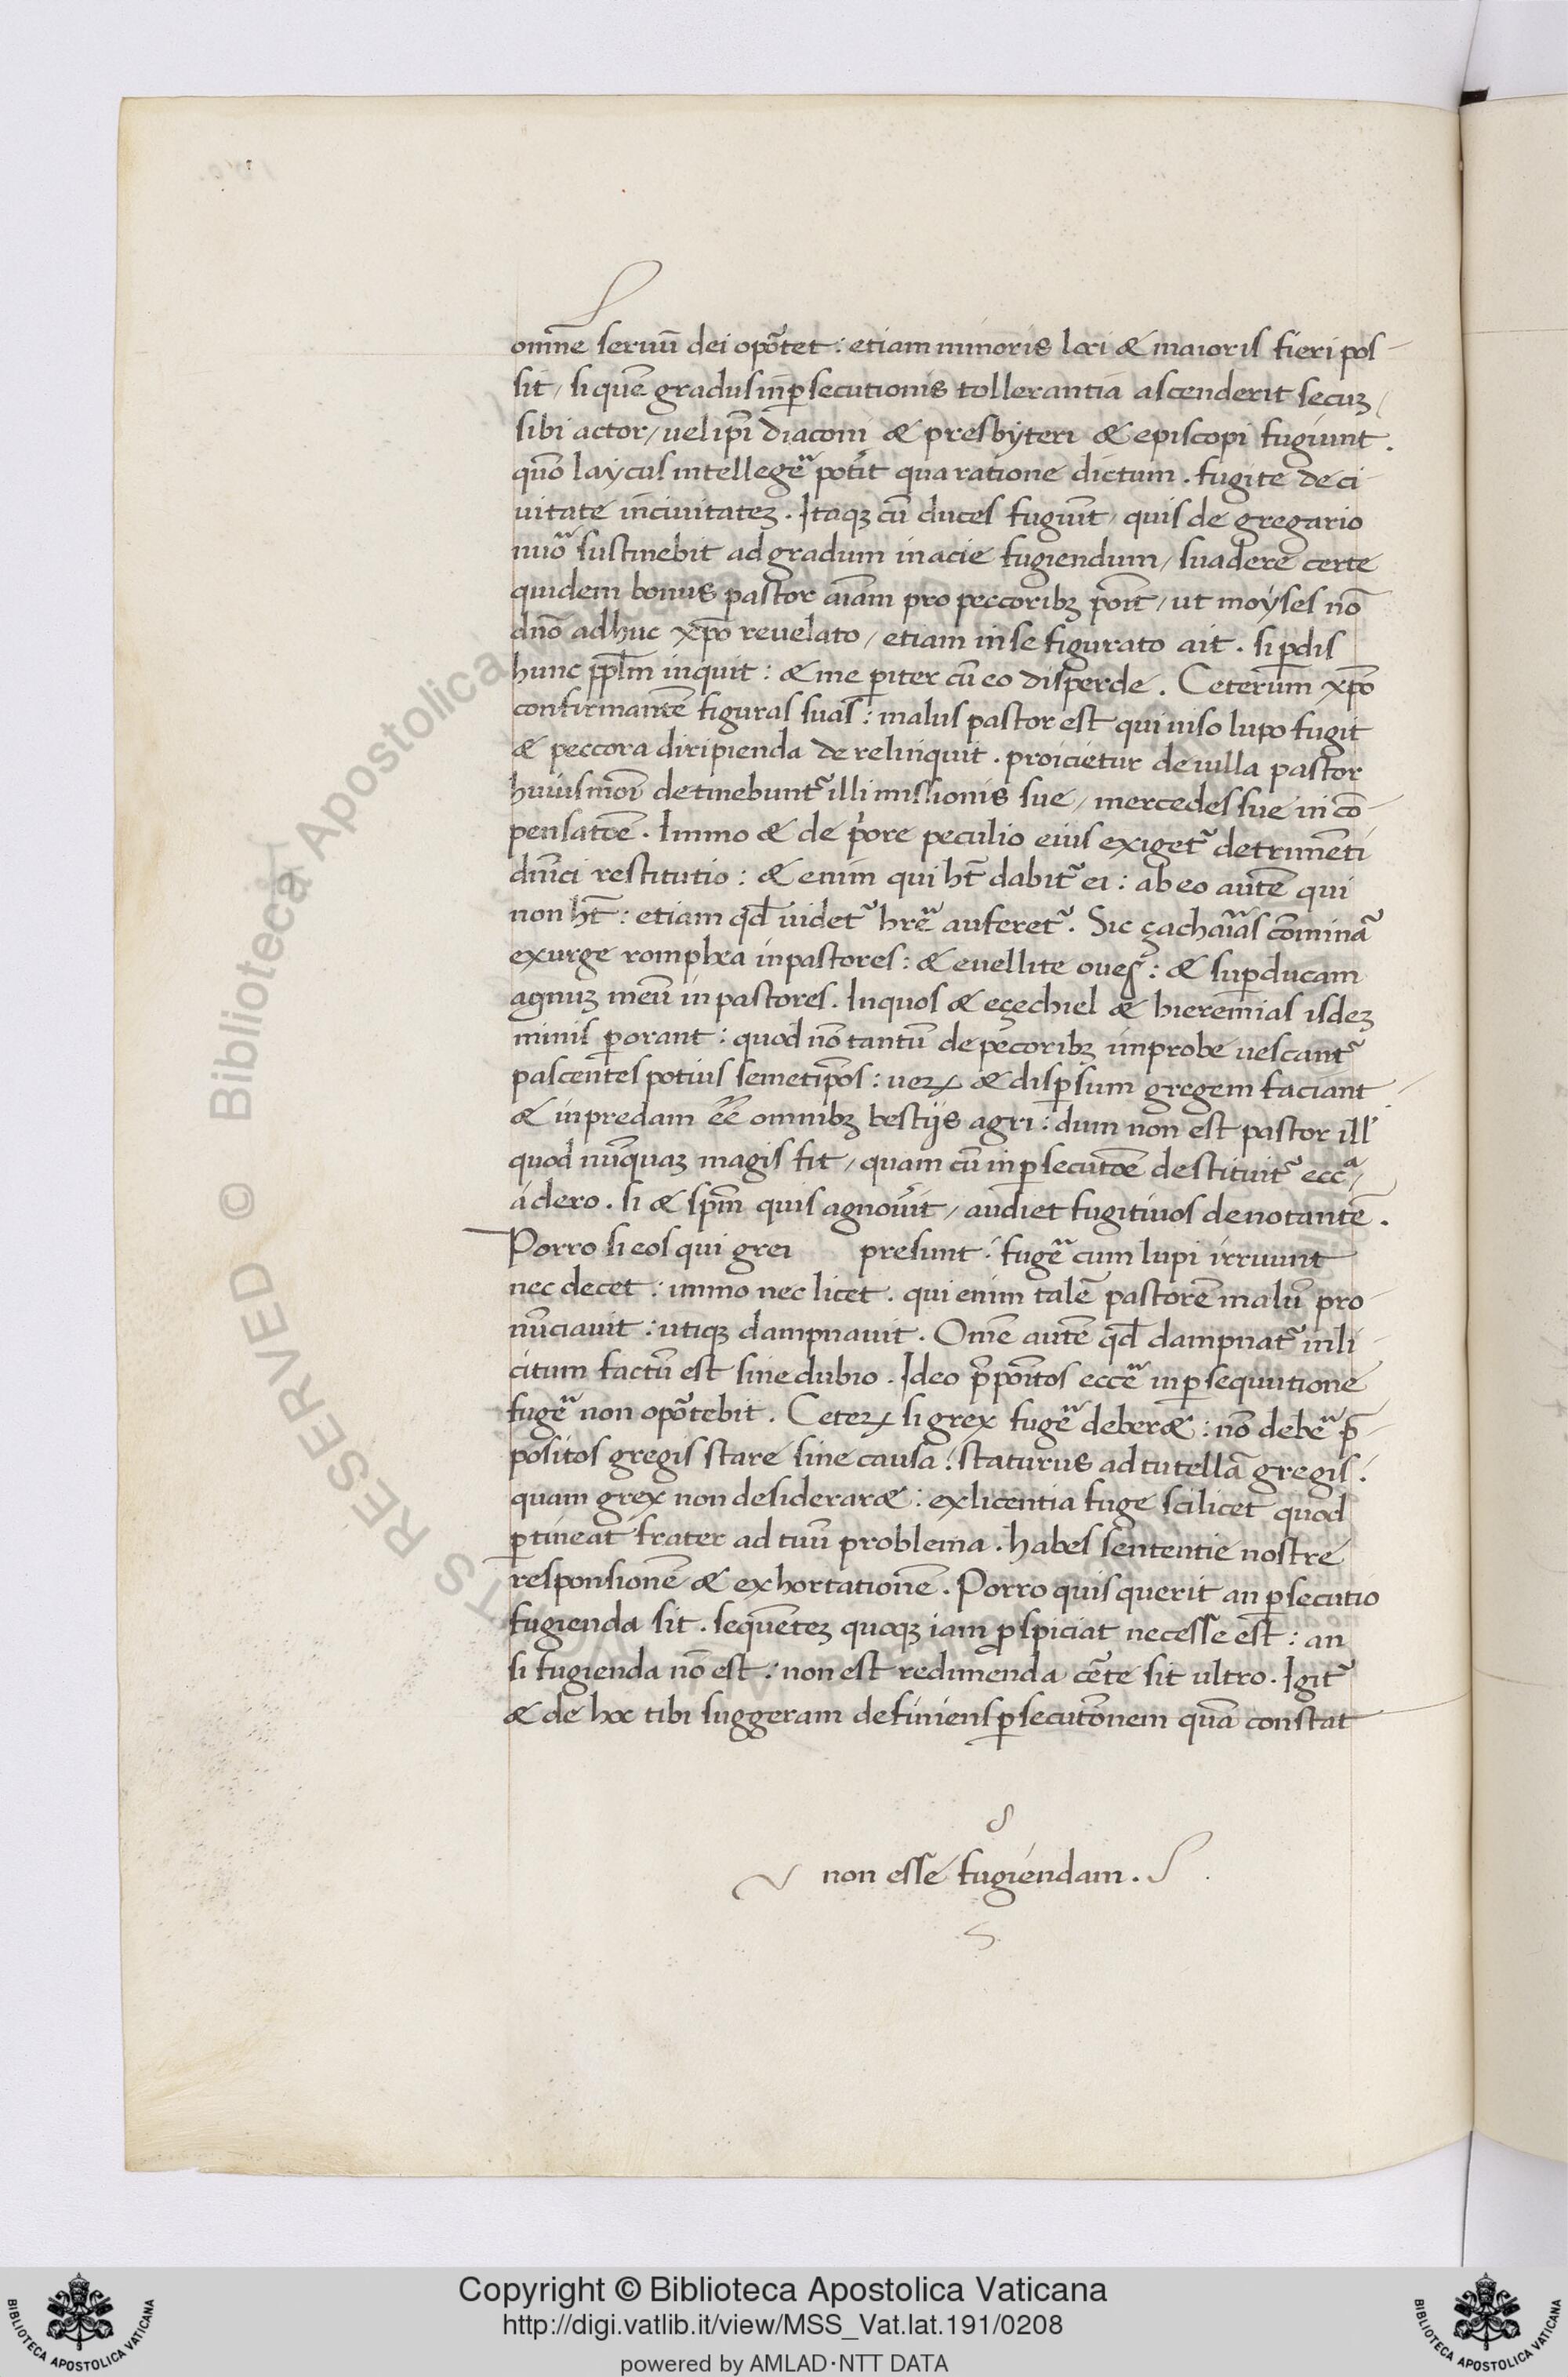 omē̄ seruū dei opo᷑tet : etiam minoris loci & maioris fieri pos-
sit / si quē gradus in ꝑsecutionis tollerantia ascenderit secuꝫ /
sibi actor / uel ip̄i diaconi & presbÿteri & episcopi fugiunt .
quō laÿcus intellegē potit qua ratione dictum . fugite de ci-
uitate in ciuitateꝫ . Itaqꝫ cū duces fugiūt / quis de gregario
nūo sustinebit ad gradum in acie fugiendum / suadere certe
quidem bonus pastor aīam pro peccoribꝫ ponit / ut moÿses nō
dn̄o adhuc xp̄o reuelato / etiam in se figurato ait . si ꝑdis
hunc ppl̄m inquit : & me ꝑiter cū eo disperde . Ceterum xp̄o
confirmante figuras suas : malus pastor est qui uiso lupo fugit
& peccora diripienda de relinquit . proicietur de uilla pastor
huiusmōi detinebunt᷑ illi missionis sue / mercedes sue in cō-
pensatōe . Immo & de pͥore peculio eius exiget᷑ detrimēti
dn̄ici restitutio : & enim qui ht̄ dabit᷑ ei : ab eo autē qui
non ht̄ : etiam qd̄ uidet᷑ hr̄e auferet᷑ . Sic çachaīas cōminā
exurge romphea in pastores : & euellite oues : & suꝑducam
agnuꝫ meū in pastores . Inquos & eçechiel & hieremias isdeꝫ
minis ꝑorant : quod nō tantū de pecoribꝫ improbe uescant᷑
pascentes potius semetip̄os : ueꝝ & disꝑsum gregem faciant
& in predam ēē omnibꝫ bestijs agri : dum non est pastor ill'
quod nūquaꝫ magis fit / quam cū in ꝑsecutōe destituit᷑ eccᵃ /
a dero . si & sp̄m quis agnouit / audiet fugitiuos denotantē .
Porro si eos qui grei presunt : fugē cum lupi irruunt
nec decet : immo nec licet . qui enim talē pastorē malū pro-
nūciauit : utiqꝫ dampnauit . Om̄e autē qd̄ dampnat᷑ inli-
citum factū est sine dubio . Ideo p̄pon̄itos eccē in ꝑsequutione
fugē non opo᷑tebit . Ceteꝝ si grex fugē deber& : nō debē p̄-
positos gregis stare sine causa : staturus ad tutellā gregis .
quam grex non desiderar& : ex licentia fuge scilicet quod
ꝑtineat frater ad tuū problema . habes sententie nostre
responsionē & exhortationē . Porro quis querit an ꝑsecutio
fugienda sit . sequēteꝫ quoqꝫ iam ꝓspiciat necesse est : an
si fugienda nō est : non est redimenda cēte sit ultro . Igit᷑
& de hoc tibi suggeram definiens ꝑsecutōnem quā constat
non esse fugiendam .
Copyright © Biblioteca Apostolica Vaticana
http://digi.vatlib.it/view/MSS_Vat.lat.191/0208
powered by AMLAD·NTT DATA
BIBLIOTECA APOSTOLICA VATICANA
BIBLIOTECA APOSTOLICA VATICANA